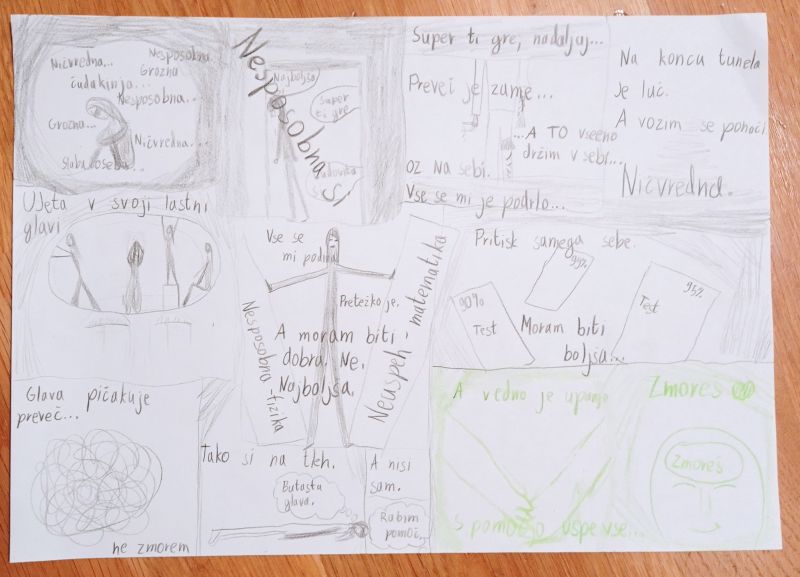 Ničvredna...
Nesposobna
Grozna
čudakinja...
Nesposobna...
Grozna...
Ničvredna...
Slaba oseba...
Nesposobna si
Najboljša
Super
ti gre
Super ti gre, nadaljuj...
Preveč je zame...
...A TO vseeno
držim v sebi...
oz na sebi.
Vse se mi je podrlo...
Na koncu tunela
je luč.
A vozim se pohoči
Ničvredna.
Ujeta v svoji lastni
glavi
Vse se
mi podira
Pretežko je.
A moram biti
dobra. Ne.
Najboljša.
Nesposobna-fizika
Neuspeh matematika
Pritisk samega sebe.
90%
Test
99%
95%
Test
Moram biti
boljša...
Glava pričakuje
preveč...
ne zmorem
Tako si na tleh.
Butasta
glava.
A nisi
sam.
Rabim
pomoč.
A vedno je upanje
S pomočjo uspe vse...
Zmoreš
Zmoreš